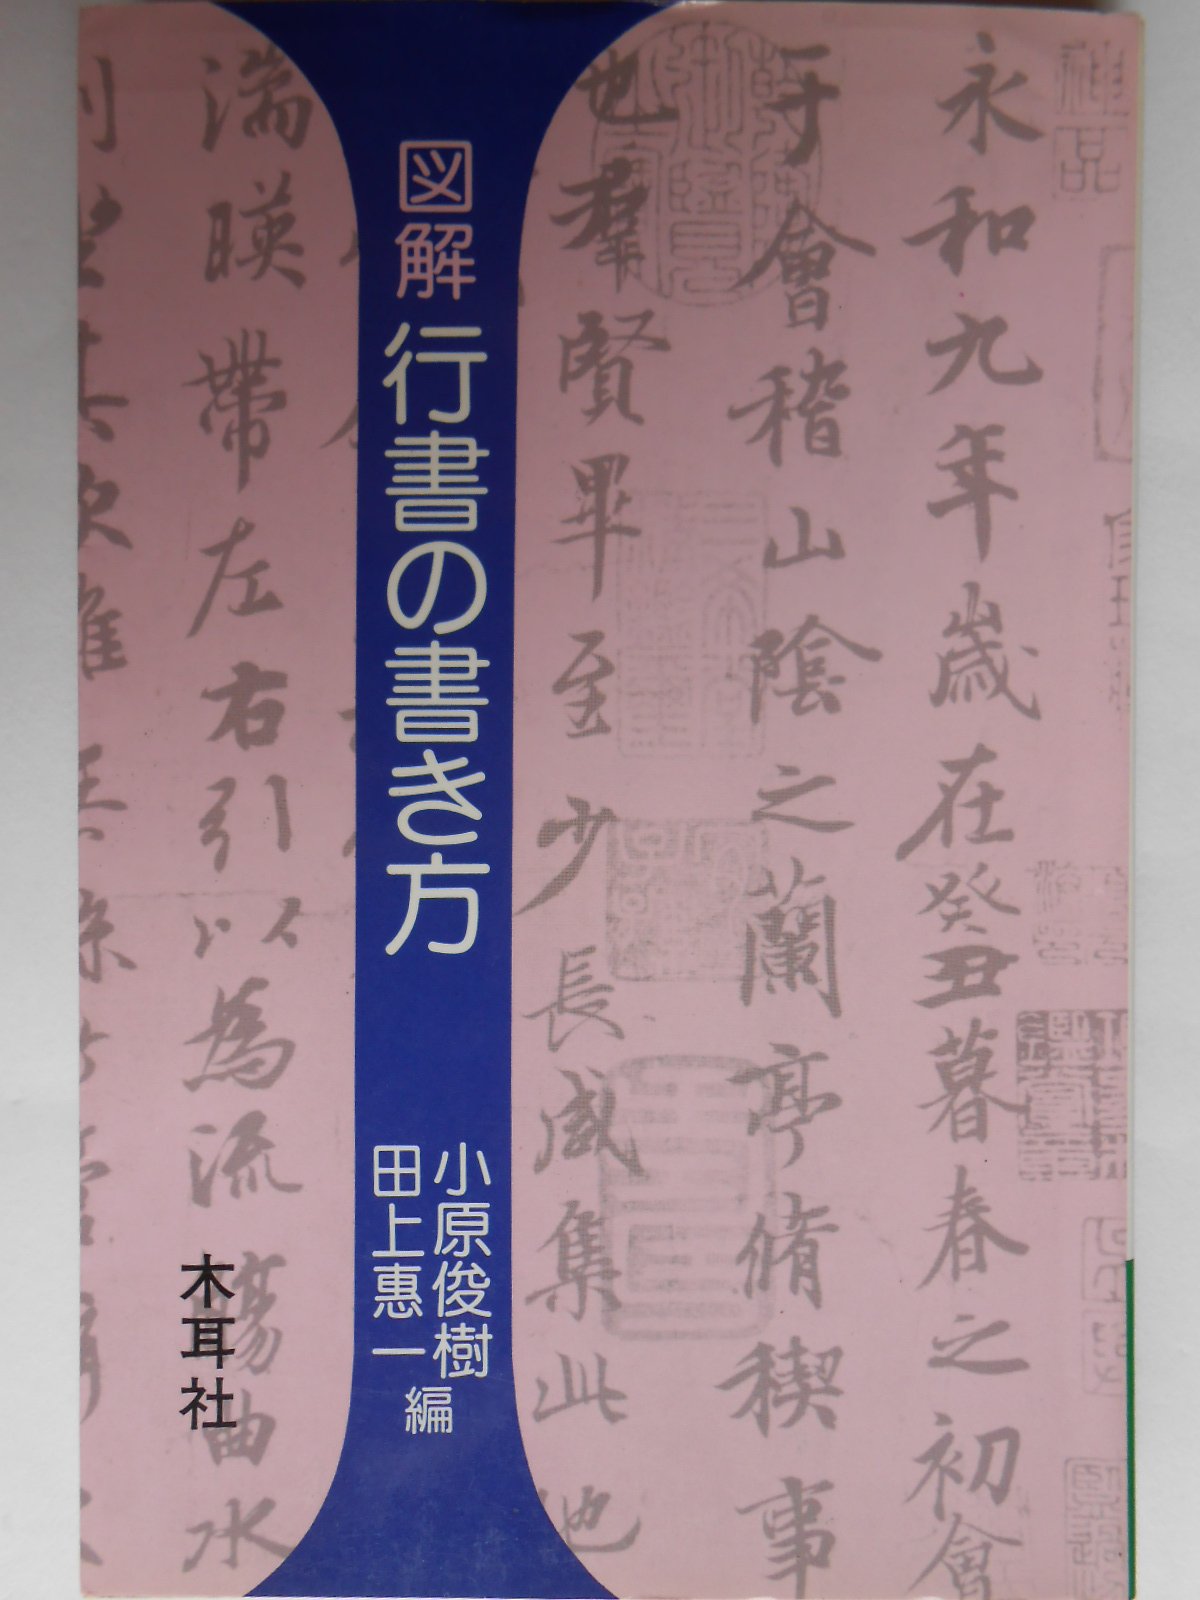 永和九年歳在癸丑暮春之初會
于會稽山陰之蘭亭脩稧事
也羣賢畢至少長咸集此地
図解 行書の書き方
小原俊樹
田上惠一 編
湍暎帶左右引以為流觴曲水
木耳社